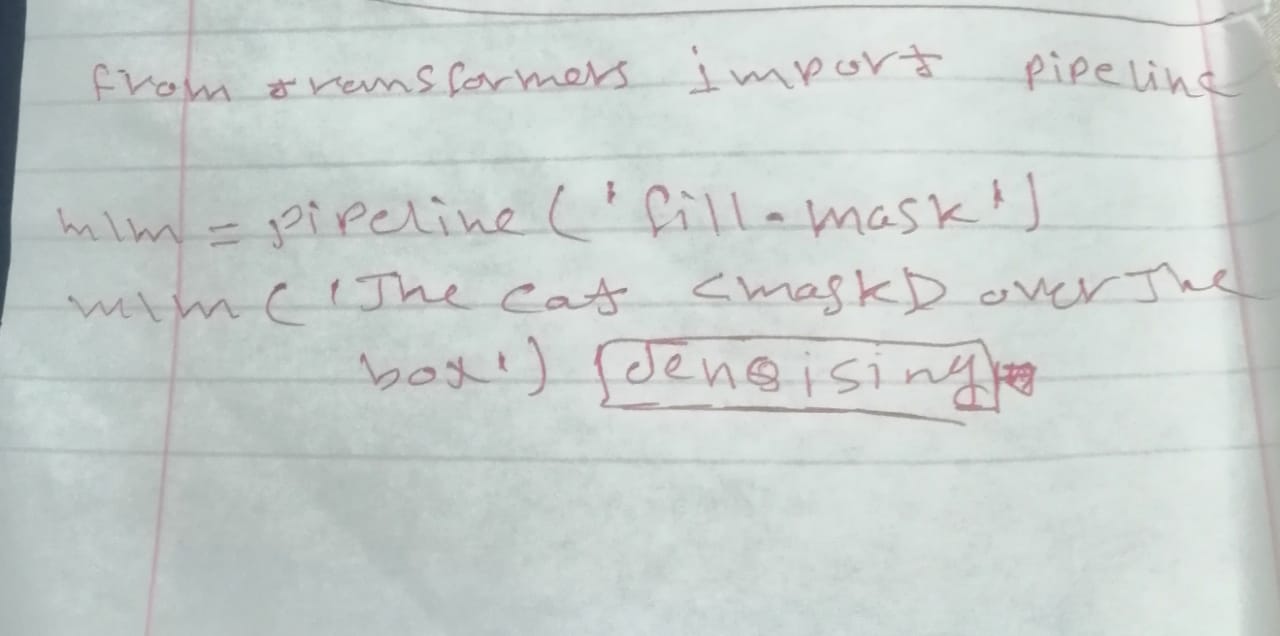 from transformers import pipeline
mlm = pipeline('fill-mask')
mlm('The cat <mask> over The
box') denoising